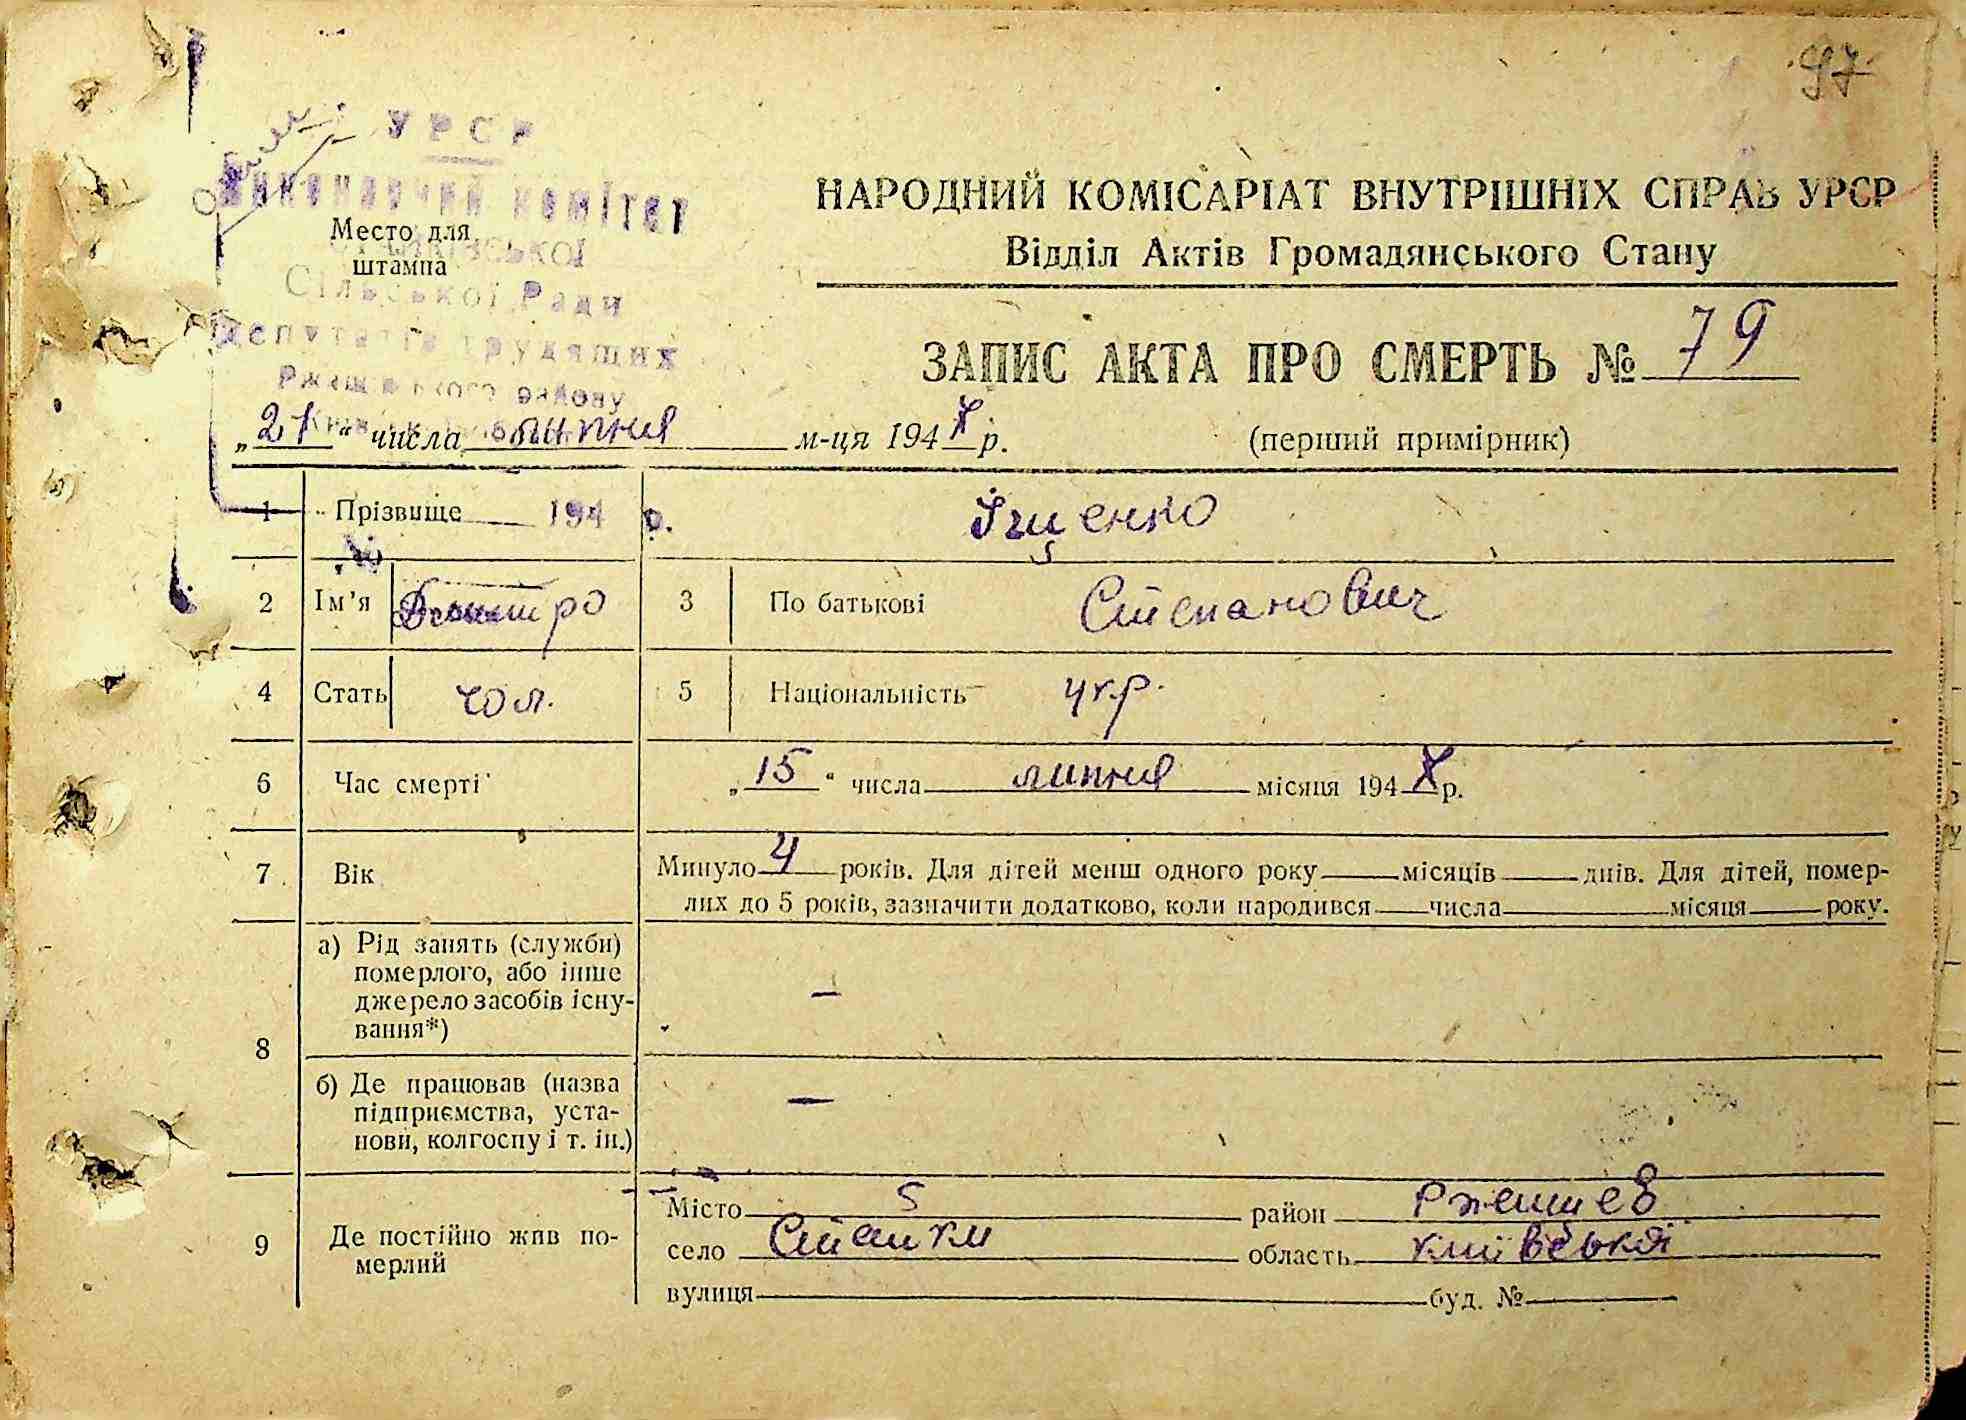 97
УРСР
Виконавчий комітет
Место для
штампа
Стайківської
Сільської Ради
депутатів трудящих
Ржищівського району
НАРОДНИЙ КОМІСАРІАТ ВНУТРІШНІХ СПРАВ УРСР
Відділ Актів Громадянського Стану
ЗАПИС АКТА ПРО СМЕРТЬ № 79
„21“ числа липня м-ця 1947 р.
(перший примірник)
1 Прізвище 194 р. Іщенко
2 Ім'я Дмитро 3 По батькові Степанович
4 Стать чол. 5 Національність укр.
6 Час смерті „15“ числа липня місяця 1947 р.
7 Вік Минуло 4 років. Для дітей менш одного року місяців днів. Для дітей, помер-
лих до 5 років, зазначити додатково, коли народився числа місяця року.
8 а) Рід занять (служби)
померлого, або інше
джерело засобів існу-
вання*) —
б) Де працював (назва
підприємства, уста-
нови, колгоспу і т. ін.) —
9 Де постійно жив по-
мерлий
Місто район Ржищев
село Стайки область Київської
вулиця буд. №